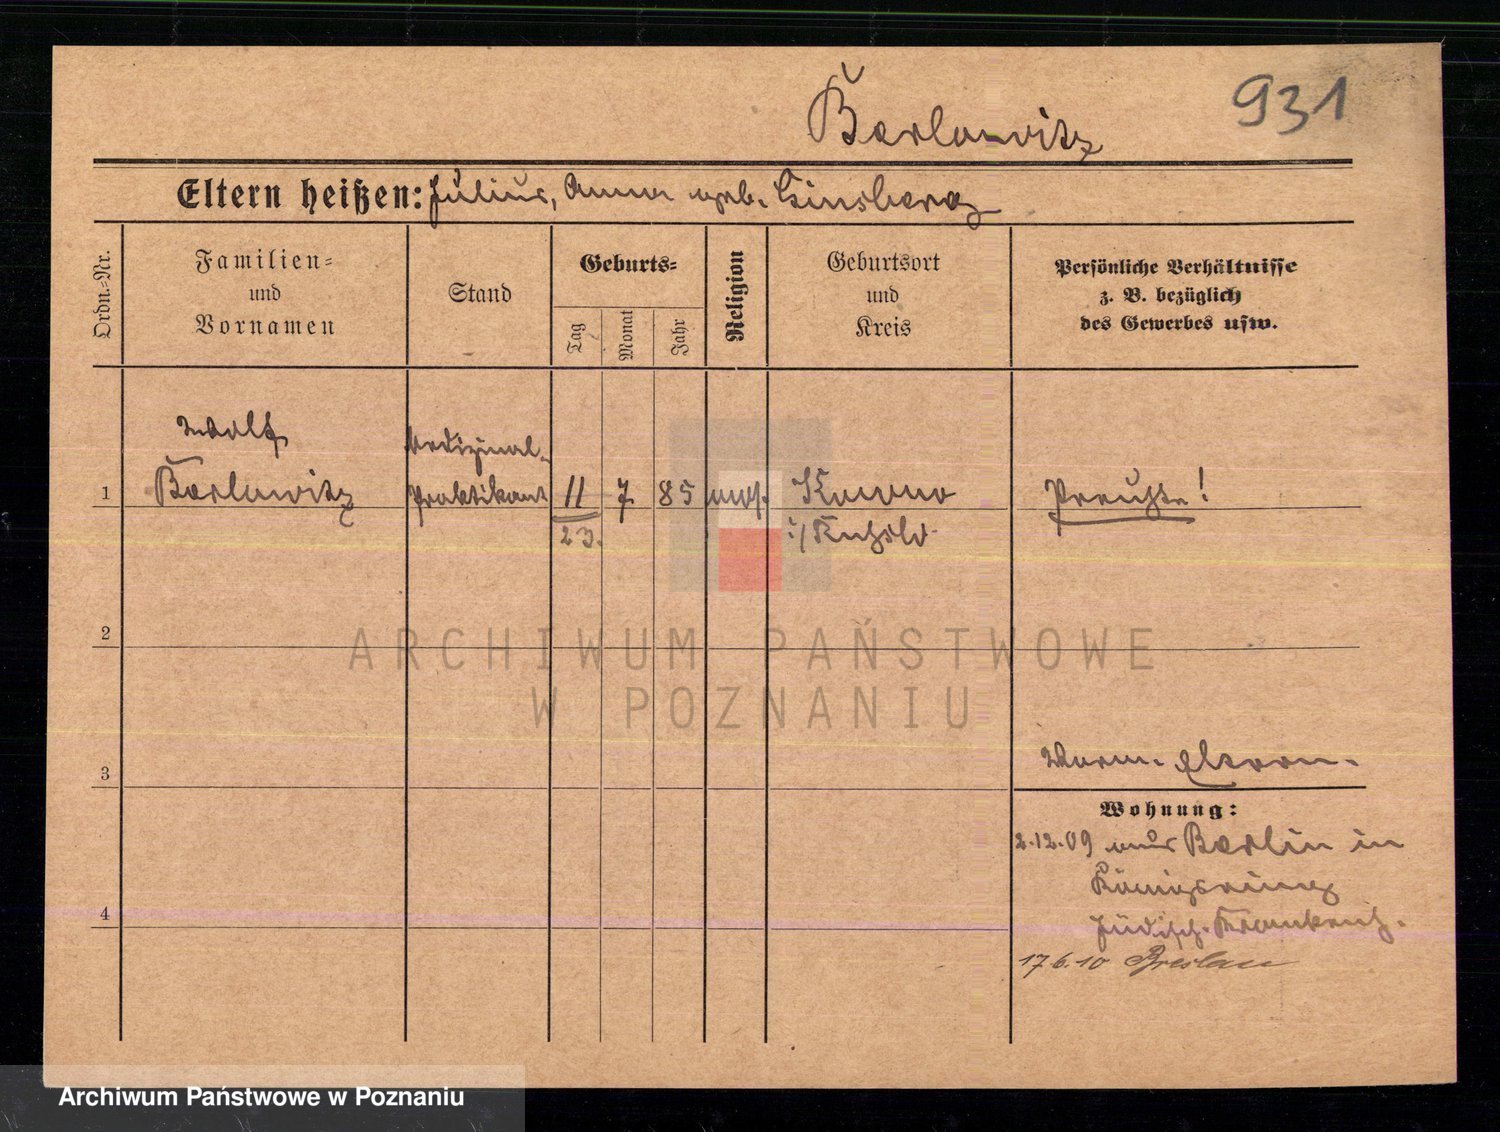 931
Berlowitz
Eltern heißen: Julius, Anna geb. Ginsberg
Ordn.-Nr.
Familien-
und
Vornamen
Stand
Geburts-
Tag
Monat
Jahr
Religion
Geburtsort
und
Kreis
Persönliche Verhältnisse
z. B. bezüglich
des Gewerbes usw.
Wolf
Medizinal-
1 Berlowitz Praktikant 11 7 85 mos. Kowno Preuße!
23. i/Rußld.
2
ARCHIWUM PAŃSTWOWE
W POZNANIU
3
Wohnung:
2.12.09 aus Berlin in
Königsring
4
Jüdisch. Krankenh.
17.6.10 Breslau
Archiwum Państwowe w Poznaniu